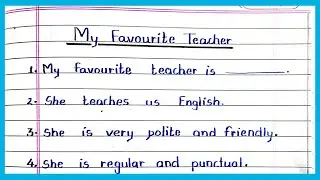 My Favourite Teacher
1. My favourite teacher is ________.
2. She teaches us English.
3. She is very polite and friendly.
4. She is regular and punctual.